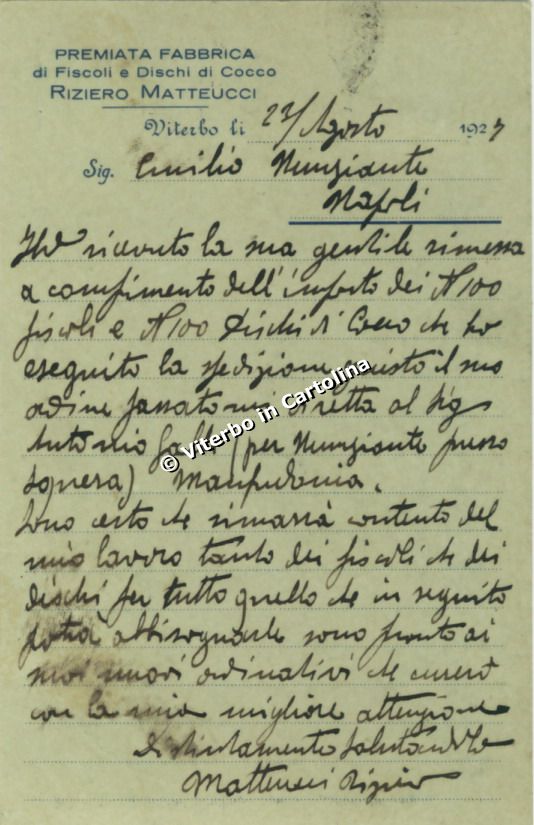 PREMIATA FABBRICA
di Fiscoli e Dischi di Cocco
RIZIERO MATTEUCCI
Viterbo li 23/Agosto 1927
Sig. Emilio Nunziante
Napoli
Ho ricevuto la sua gentile rimessa
a compimento dell'importo dei N 100
fiscoli e N 100 Dischi di Cocco che ho
eseguito la spedizione giusto il suo
ordine passatomi diretta al Sig
Antonio (per Nunziante presso
Manfredonia.
Sono certo che rimarrà contento del
mio lavoro tanto dei fiscoli che dei
dischi per tutto quello che in seguito
potrà abbisognarle sono pronto ai
suoi nuovi ordinativi che curerò
con la mia migliore attenzione
Distintamente salutandola
Matteucci Riziero
© Viterbo in Cartolina